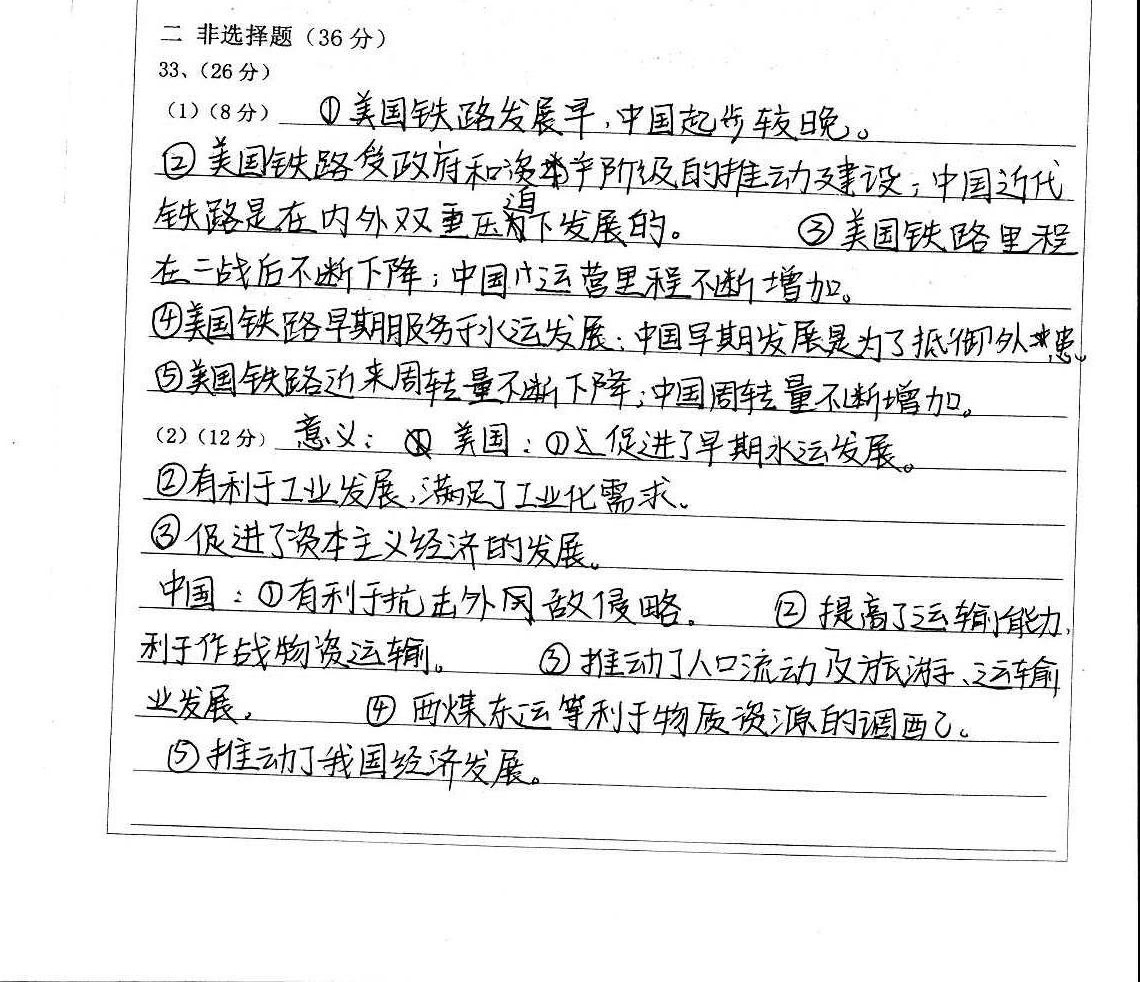 二 非选择题（36 分）
33、（26 分）
（1）（8 分） ①美国铁路发展早，中国起步较晚。
②美国铁路受政府和资产阶级的推动及建设；中国近代
铁路是在内外双重压迫下发展的。 ③美国铁路里程
在二战后不断下降；中国运营里程不断增加。
④美国铁路早期服务于水运发展；中国早期发展是为了抵御外患。
⑤美国铁路近来周转量不断下降；中国周转量不断增加。
（2）（12 分） 意义：美国：①促进了早期水运发展。
②有利于工业发展，满足了工业化需求。
③促进了资本主义经济的发展。
中国：①有利于抗击外敌侵略。 ②提高了运输能力，
利于作战物资运输。 ③推动了人口流动及旅游、运输
业发展。 ④西煤东运等利于物质资源的调配。
⑤推动了我国经济发展。